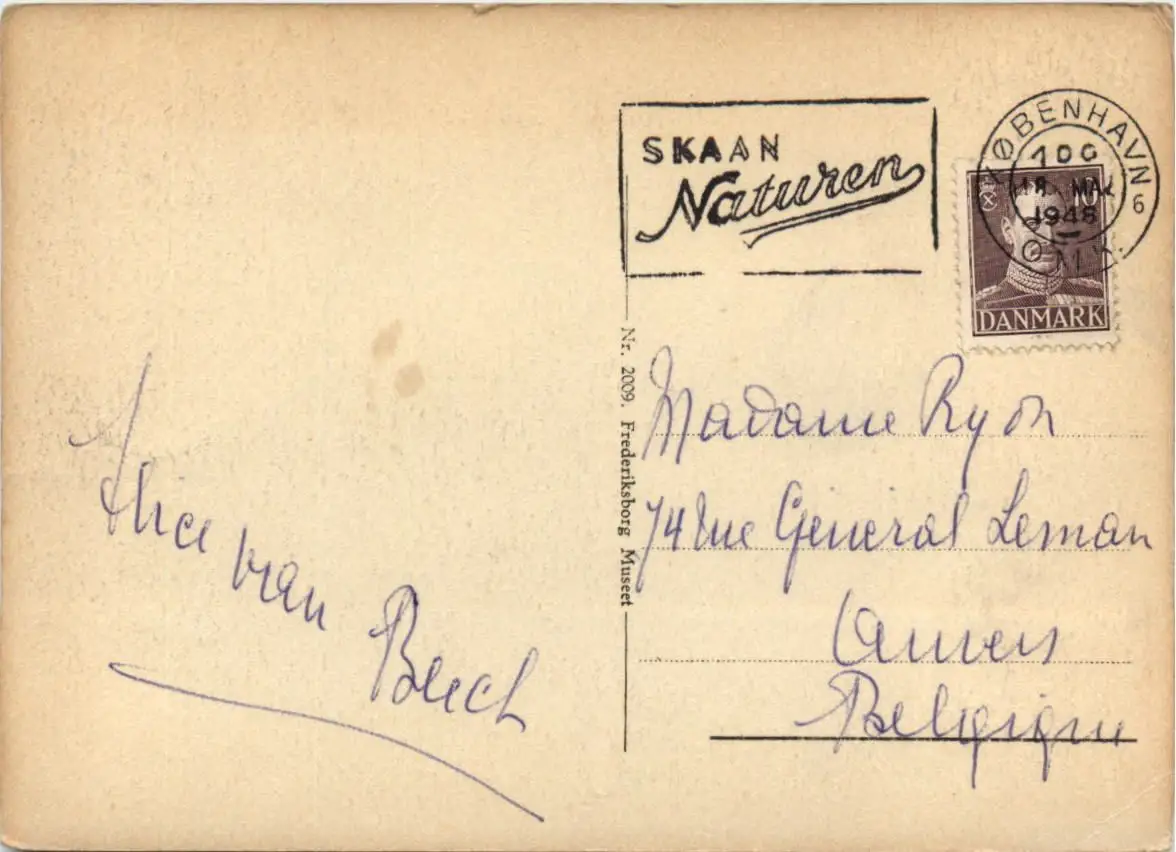 SKAAN
Naturen
KØBENHAVN
1948
ØMK.
6
10
DANMARK
Nr. 2009. Frederiksborg Museet
Madame Ryon
74 rue General Leman
Anvers
Belgique
van